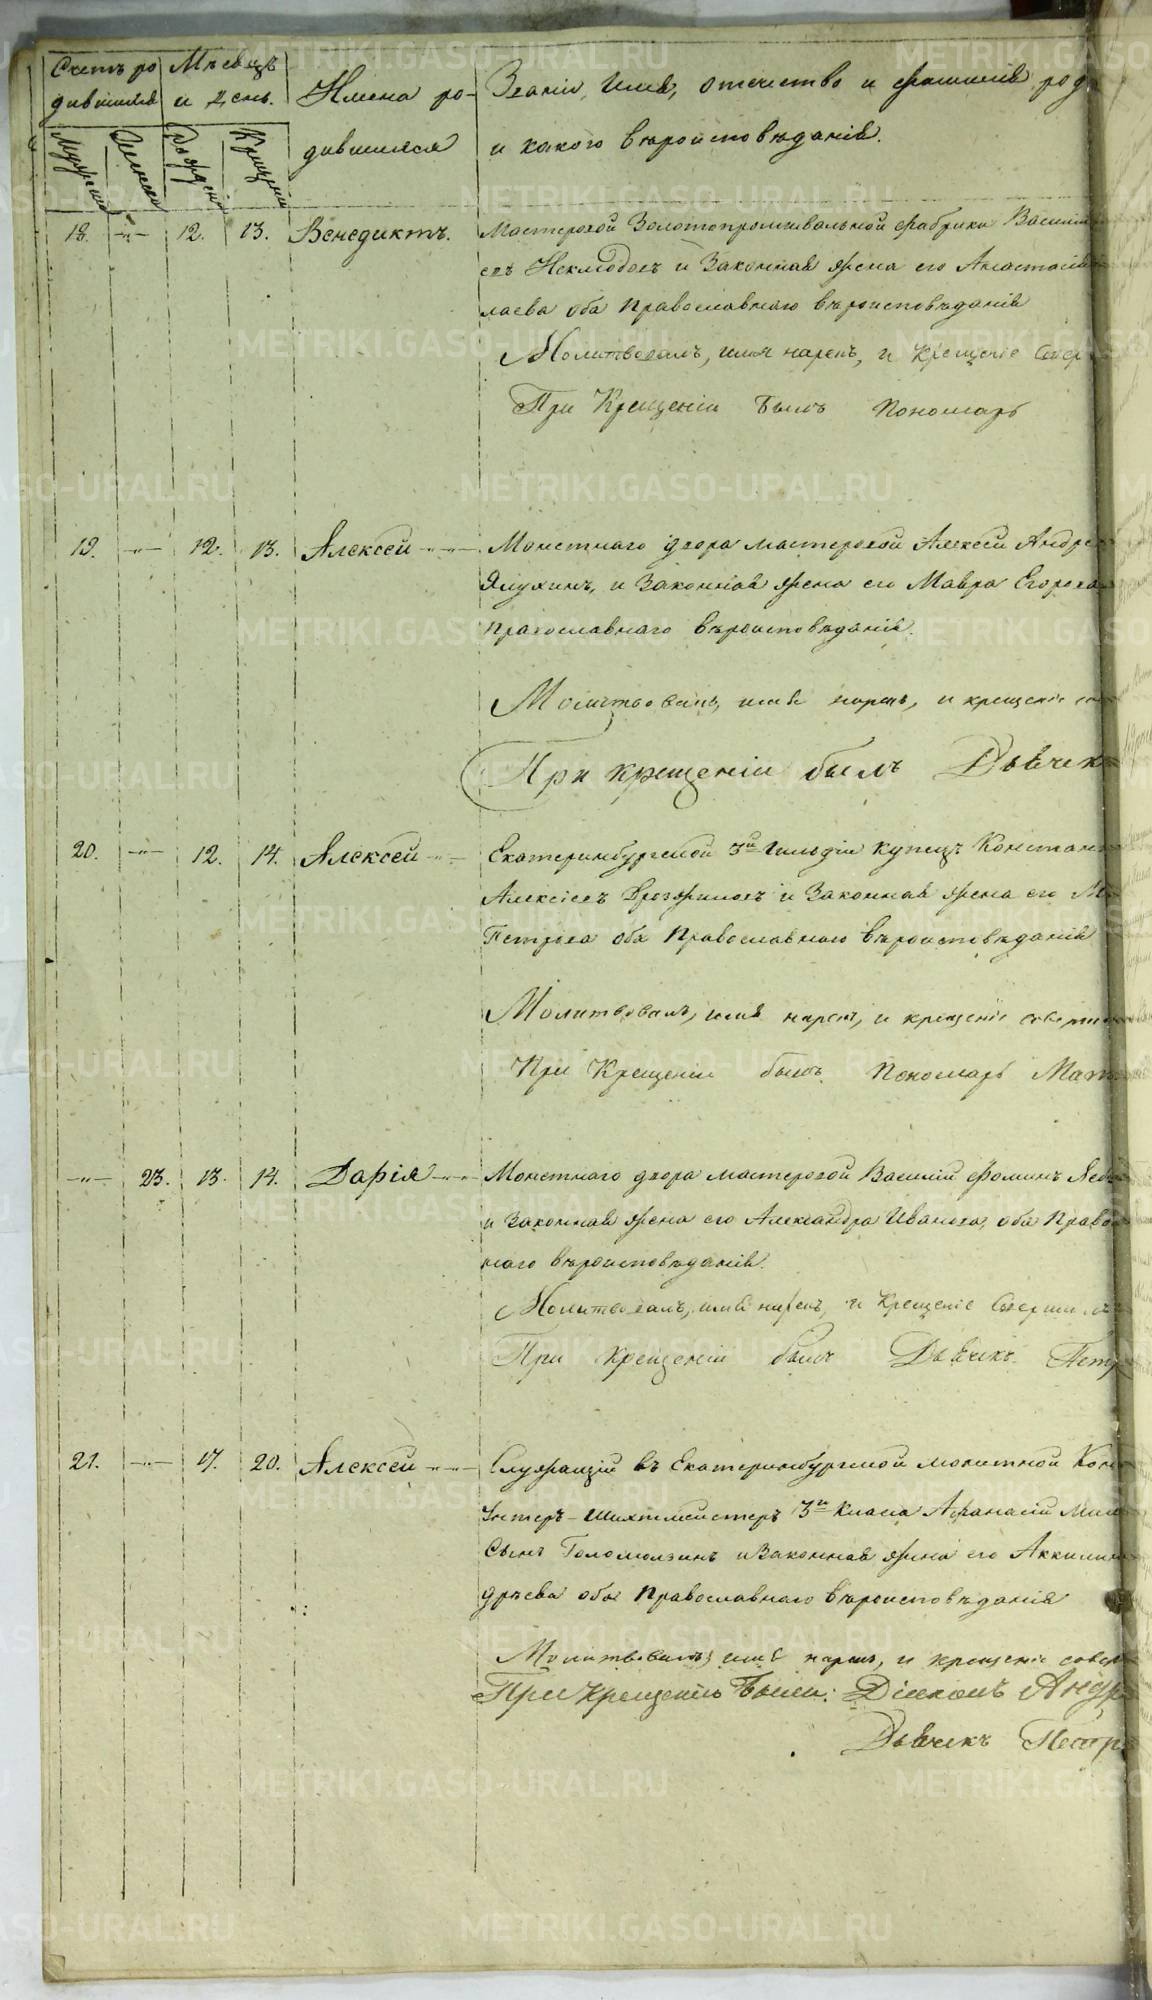 Счетъ ро
дившихся
Мѣсяцъ
и День.
Имена ро-
дившихся
Званіе, имя, отечество и фамилія род
и какого вѣроисповѣданія.
Мужеска
Женска
Рожденія
Крещенія
18. 12. 13. Венедиктъ. Мастеровой Золотопромывальной фабрики Васил
евъ Неклюдовъ и Законная жена его Анастасія
лаева оба Православнаго вѣроисповѣданія
Молитвовалъ, имя нарекъ, и Крещеніе Совер
При Крещеніи Былъ Пономарь
19. 12. 13. Алексей Монетнаго двора мастеровой Алексей Андре
и Законная жена его Мавра Егорова
Православнаго вѣроисповѣданія.
Молитвовалъ, имя нарекъ, и крещеніе
При крещеніи былъ Дьячек
20. 12. 14. Алексей Екатеринбургской 3й Гильдіи Купецъ Констан
Алексѣевъ Дрозжиловъ и Законная жена его М
Петрова оба Православнаго вѣроисповѣданія
Молитвовалъ, имя нарекъ, и крещеніе соверши
При Крещеніи былъ Пономарь Мат
23. 13. 14. Дарія Монетнаго двора мастеровой Василій Фоминъ
и Законная жена его Александра Иванова, оба Право
наго вѣроисповѣданія.
Молитвовалъ, имя нарекъ, и Крещеніе Соверши лъ
При Крещеніи былъ Дьячекъ Петр
21. 17. 20. Алексей Служащій въ Екатеринбургской монетной Кон
Унтеръ-шихтмейстеръ 3го класа Афанасій Ми
Сынъ Голомолзинъ и Законная жена его Аккилин
дрѣева оба Православнаго вѣроисповѣданія
Молитвовалъ, имя нарекъ, и крещеніе совер
При крещеніи Были: Діяконъ Андр
Дьячекъ Петр
METRIKI.GASO-URAL.RU